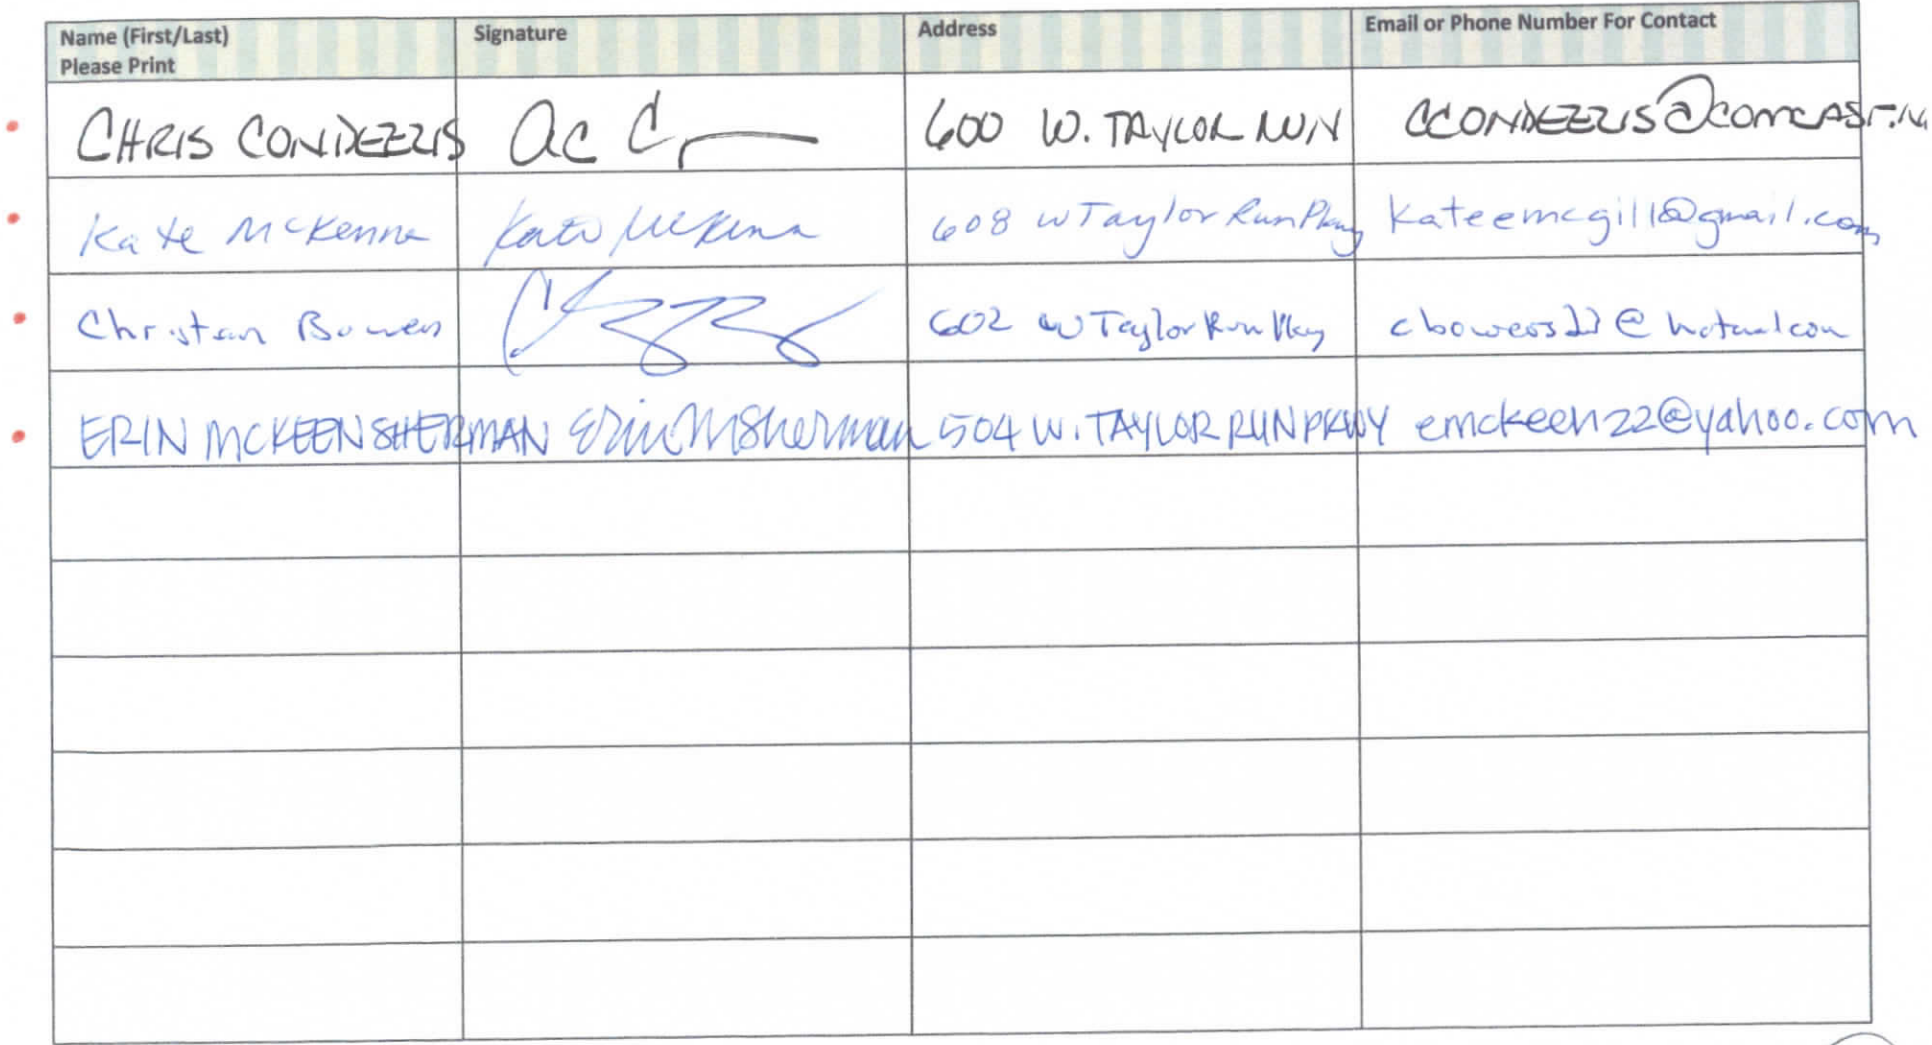 Name (First/Last) Signature Address Email or Phone Number For Contact
Please Print
CHRIS CONDEEZIS ac C 600 W. TAYLOR RUN CCONDEEZIS@COMCAST.N
Kate McKenna Kate McKenna 608 W Taylor Run Pkwy kateemcgill@gmail.com
Christian Bowers 602 W Taylor Run Pkwy cbowers22@hotmail.com
ERIN MCKEEN SHERMAN Erin M Sherman 504 W. TAYLOR RUN PKWY emckeen22@yahoo.com